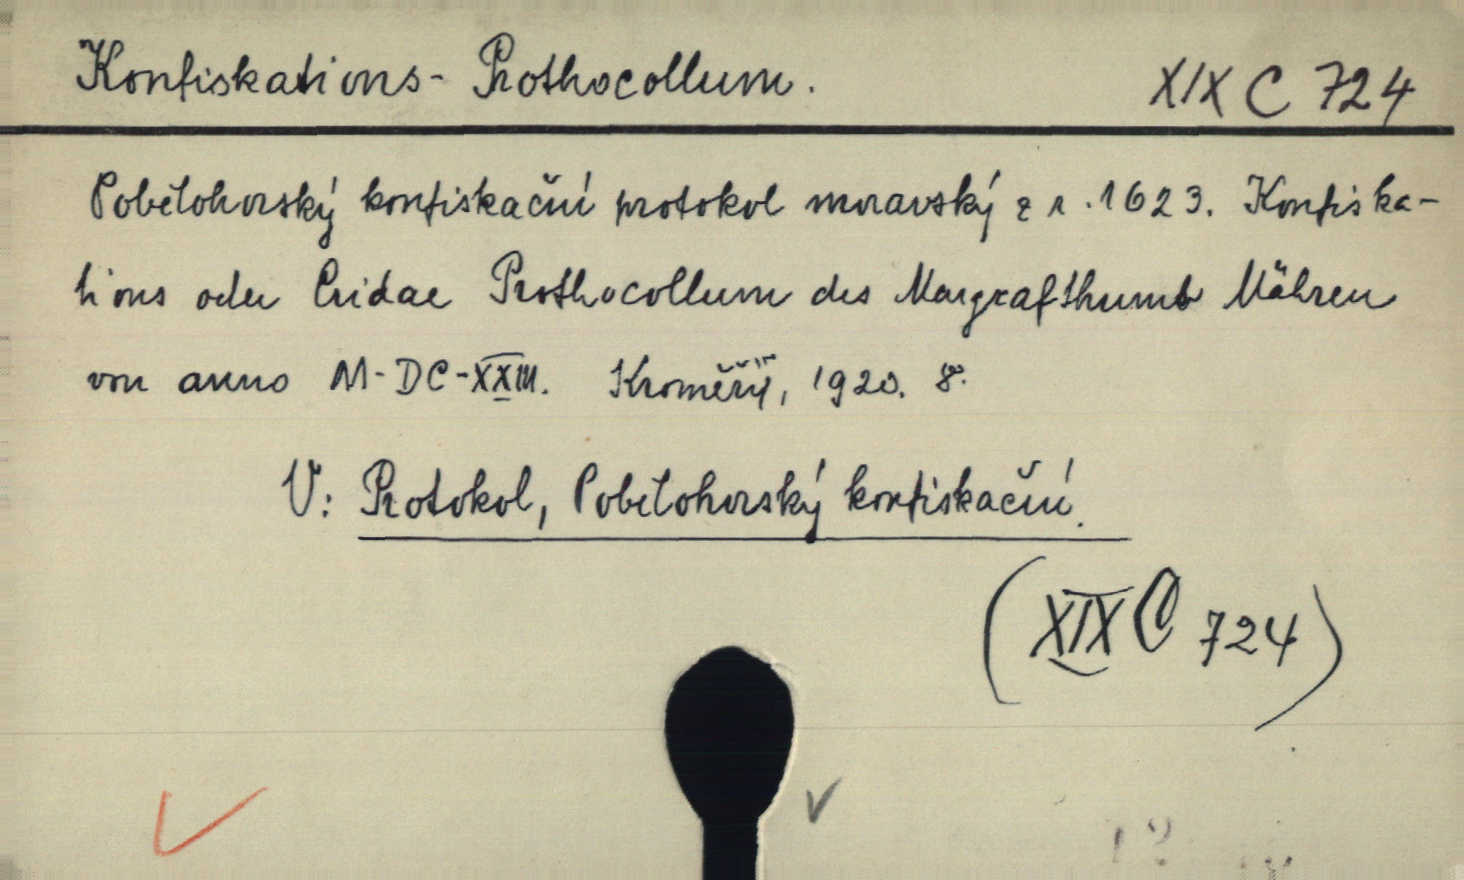 Konfiskations- Prothocollum.
XIX C 724
Pobělohorský konfiskační protokol moravský z r. 1623. Konfiska-
tions oder Cridae Prothocollum des Margrafthumb Mähren
von anno M-DC-XXIII. Kroměříž, 1920. 8°.
V: Protokol, Pobělohorský konfiskační.
(XIX C 724)